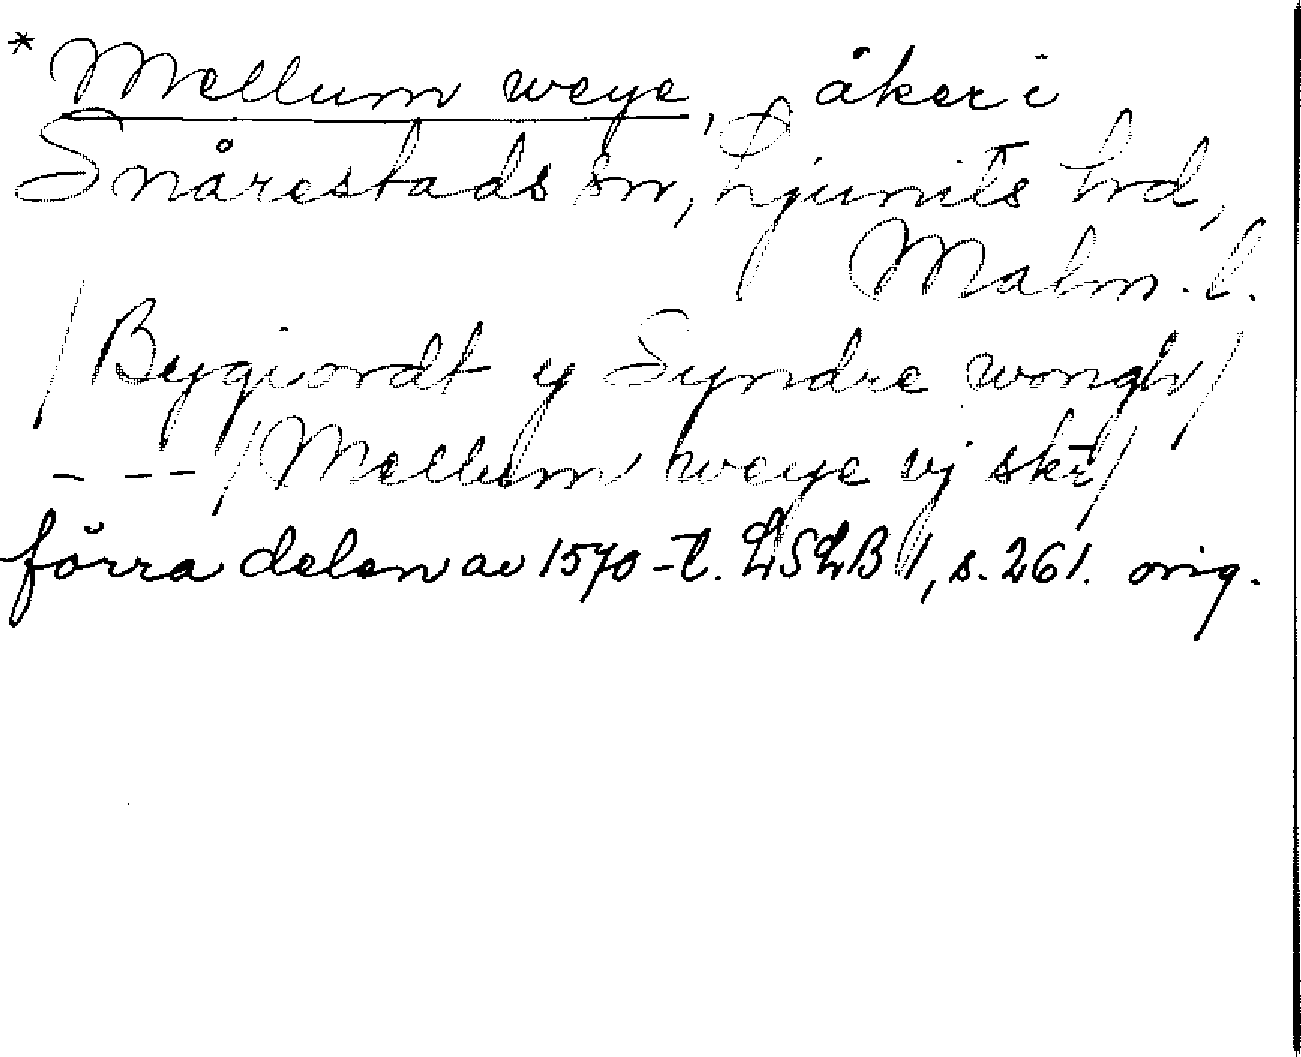 * Mellum weye, åker i
Snårestads sn, Ljunits hd,
Malm. l.
/Bygiordt y Syndre wongh/
--- /Mellum weye vj skr/
förra delen av 1570-t. LSLB 1, s. 261. orig.